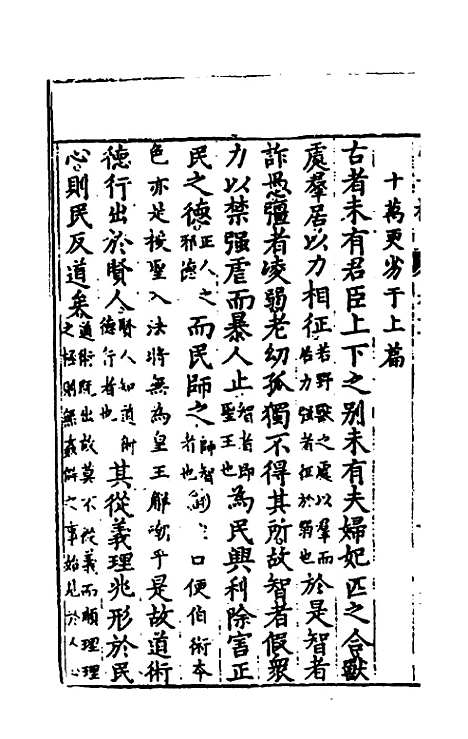 十萬更劣于上篇
古者未有君臣上下之別未有夫婦妃匹之合獸
處羣居以力相征若野獸之處以羣而居力强者征於弱也於是智者
詐愚彊者凌弱老幼孤獨不得其所故智者假衆
力以禁强虐而暴人止智者即聖王也為民興利除害正
民之德正人之邪德而民師之師智者也口便伯術本
色亦是援聖入法將無為皇王解嘲乎是故道術
德行出於賢人賢人知道術德行者也其從義理兆形於民
心則民反道矣道術既出故莫不從義而順理理之極則無義之事始見於人心